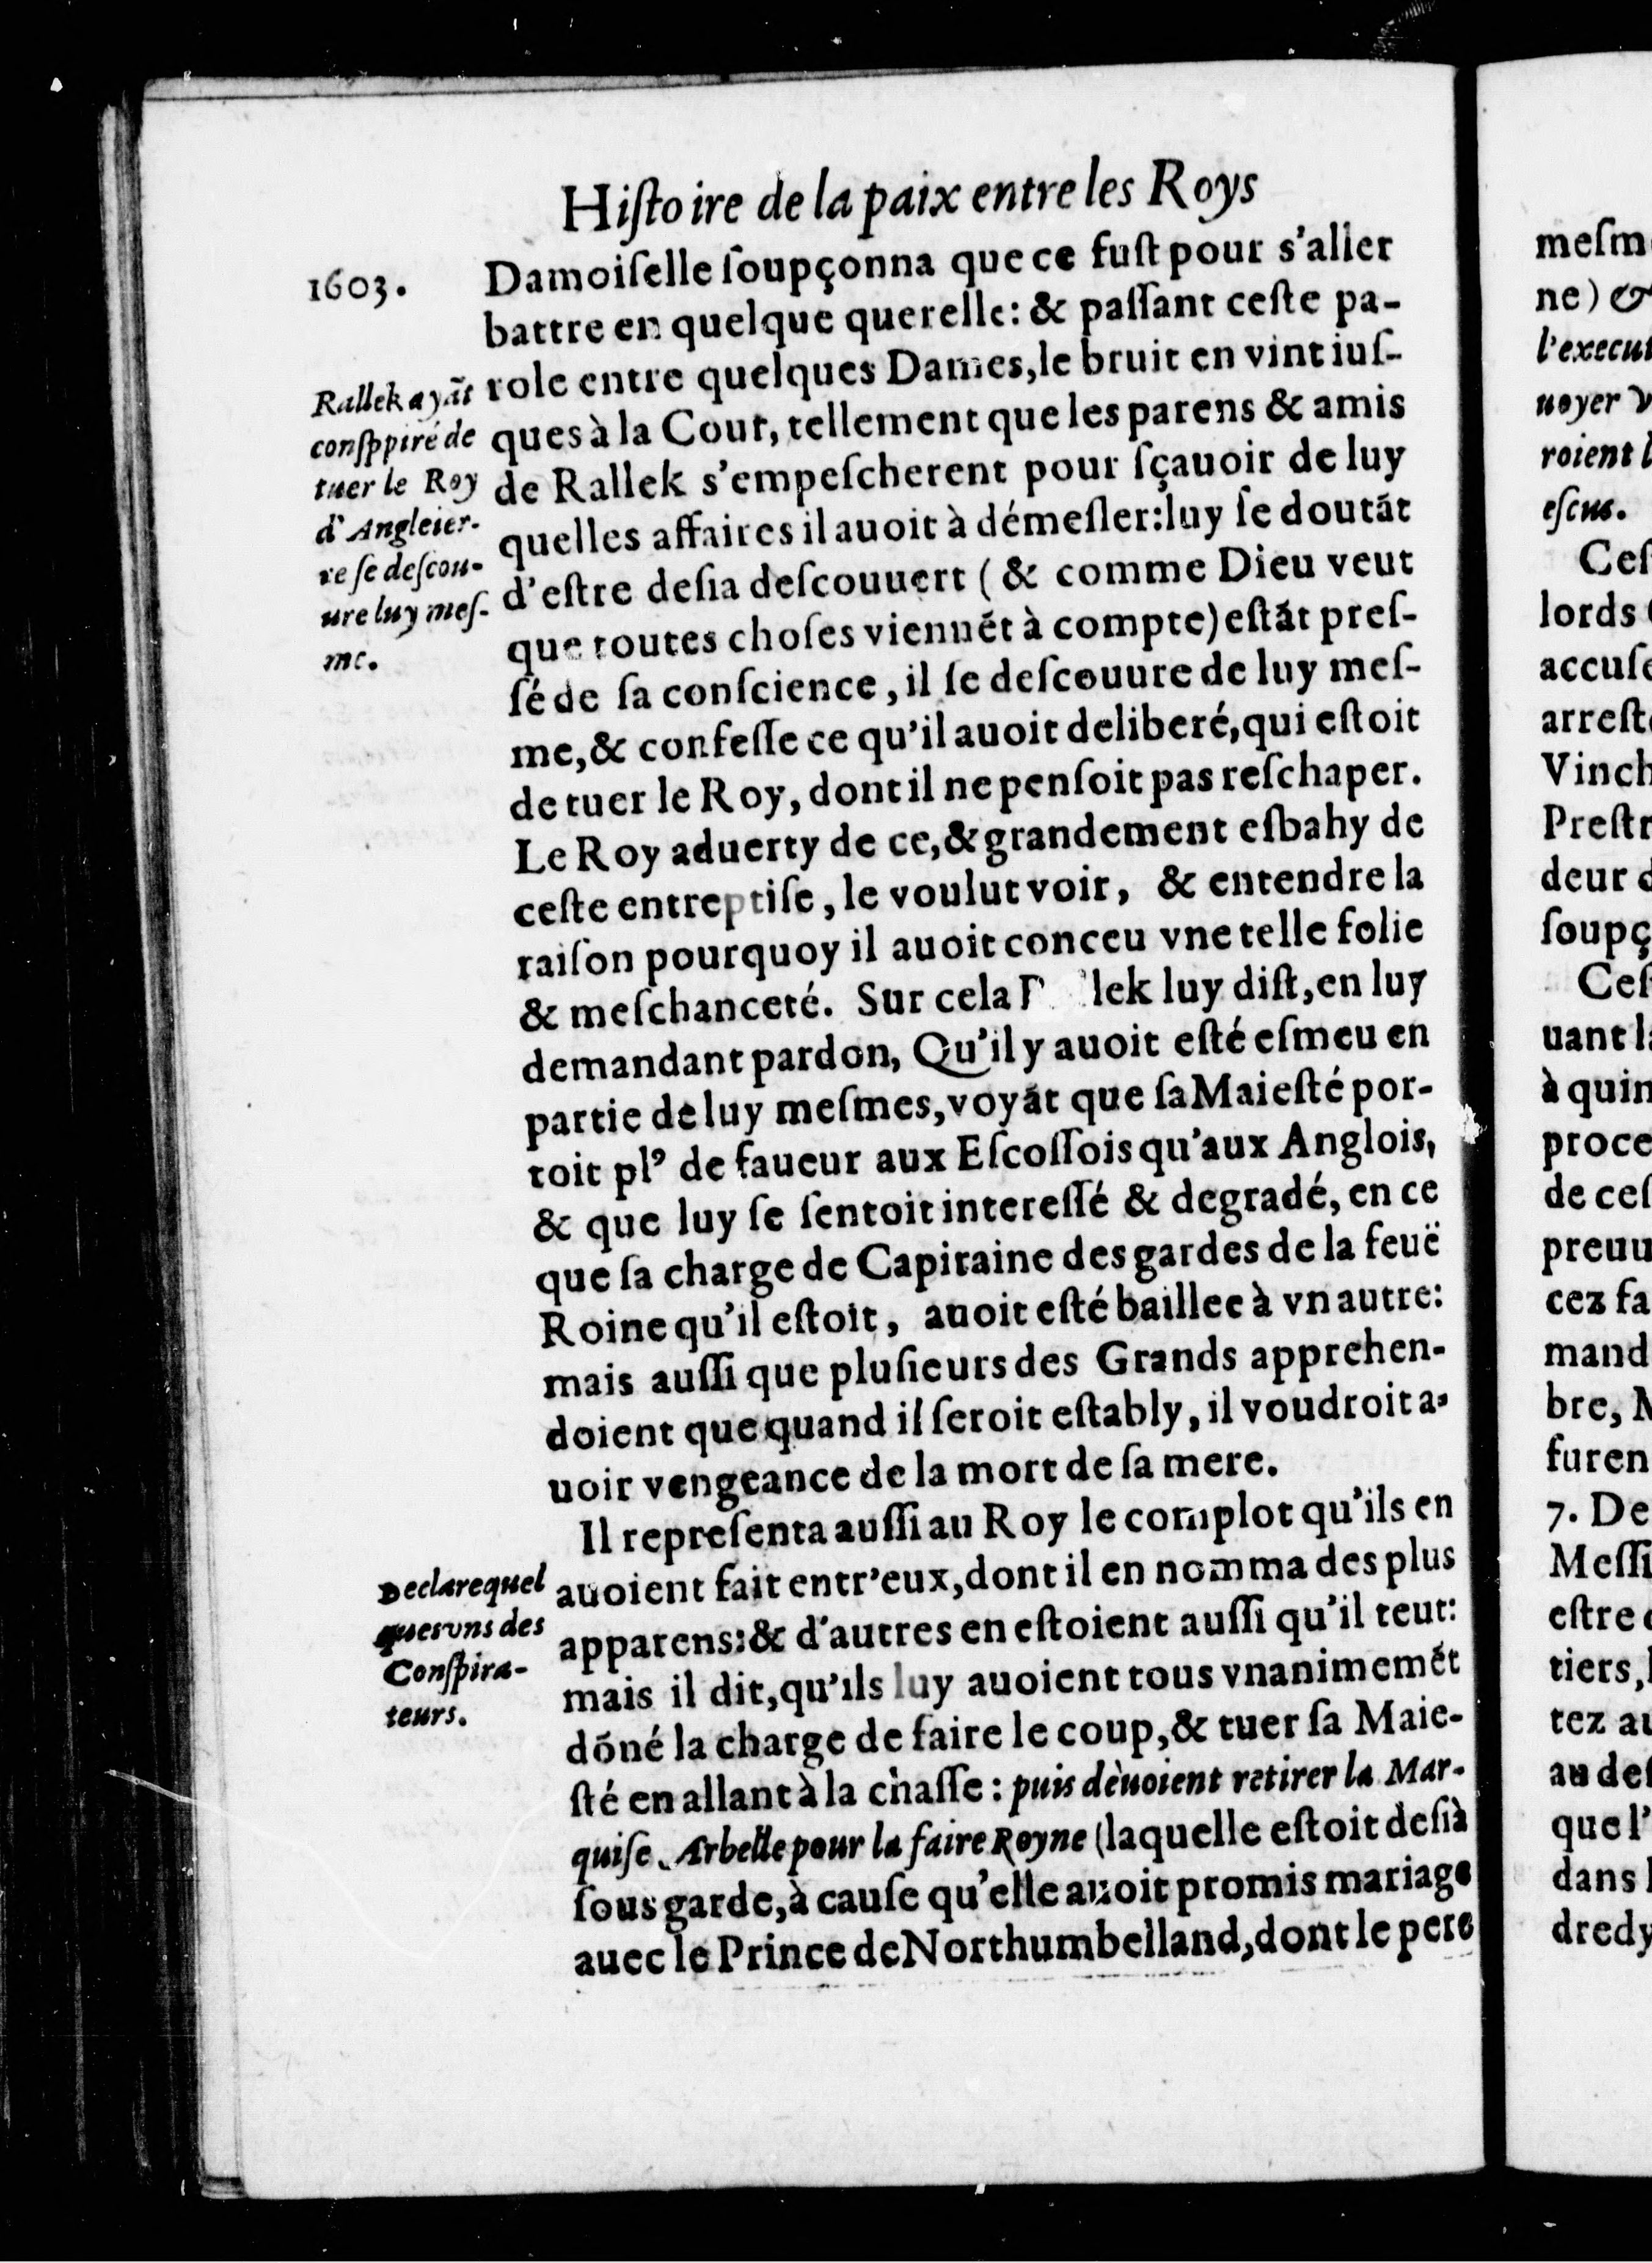 Hiſtoire de la paix entre les Roys
1603.
Damoiſelle ſoupçonna que ce fuſt pour s'aller
battre en quelque querelle: & paſſant ceſte pa-
role entre quelques Dames, le bruit en vint iuſ-
ques à la Cour, tellement que les parens & amis
de Rallek s'empeſcherent pour ſçauoir de luy
quelles affaires il auoit à démeſler: luy ſe doutãt
d'eſtre deſia deſcouuert (& comme Dieu veut
que toutes choſes viennẽt à compte) eſtãt preſ-
ſé de ſa conſcience, il ſe deſcouure de luy meſ-
me, & confeſſe ce qu'il auoit deliberé, qui eſtoit
de tuer le Roy, dont il ne penſoit pas reſchaper.
Le Roy aduerty de ce, & grandement eſbahy de
ceſte entrepriſe, le voulut voir, & entendre la
raiſon pourquoy il auoit conceu vne telle folie
& meſchanceté. Sur cela Rallek luy diſt, en luy
demandant pardon, Qu'il y auoit eſté eſmeu en
partie de luy meſmes, voyãt que ſa Maieſté por-
toit plꝰ de faueur aux Eſcoſſois qu'aux Anglois,
& que luy ſe ſentoit intereſſé & degradé, en ce
que ſa charge de Capitaine des gardes de la feuë
Roine qu'il eſtoit, auoit eſté baillee à vn autre:
mais auſſi que pluſieurs des Grands apprehen-
doient que quand il ſeroit eſtably, il voudroit a-
uoir vengeance de la mort de ſa mere.
Il repreſenta auſſi au Roy le complot qu'ils en
auoient fait entr'eux, dont il en nomma des plus
apparens: & d'autres en eſtoient auſſi qu'il teut:
mais il dit, qu'ils luy auoient tous vnanimemẽt
dõné la charge de faire le coup, & tuer ſa Maie-
ſté en allant à la chaſſe: puis dèuoient retirer la Mar-
quiſe Arbelle pour la faire Royne (laquelle eſtoit deſià
ſous garde, à cauſe qu'elle auoit promis mariage
auec le Prince de Northumbelland, dont le pere
Rallek ayãt
conſppiré de
tuer le Roy
d'Angleter-
re ſe deſcou-
ure luy meſ-
me.
Declare quel
ques vns des
Conſpira-
teurs.
meſm
ne) &
l'execut
uoyer v
roient l
eſcus.
Ceſ
lords
accuſe
arreſt
Vinch
Preſtr
deur d
ſoupç
Ceſ
uant l
à quin
proce
de ceſ
preuu
cez fa
mand
bre, M
furen
7. De
Meſſi
eſtre
tiers,
tez au
au deſ
que l'
dans l
dredy